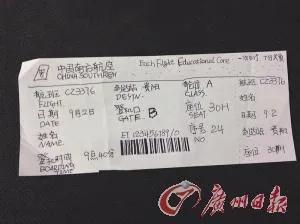 中国南方航空 Each Flight Educational Care
CHINA SOUTHREN
航班 CZ3376 到达站 贵阳 舱位 A
FLIGHT DESTN. CLASS
日期 9月2日 登机口 座位 30H
DATE GATE B SEAT
姓名 ET 123456189/0 序号 24
NAME NO.
登机时间 9点40分
BOARDING TIME
航班 CZ3376
姓名
日期 9.2
到达站 贵阳
座位 30H
广州日报